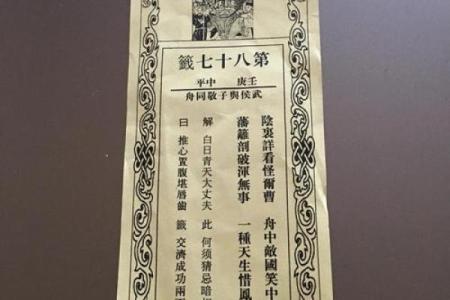 第八十七籤
壬庚 中平
武侯與子敬同舟
陰裏詳看怪爾曹 舟中敵國笑中
藩籬剖破渾無事 一種天生惜鳳
解 白日青天大丈夫 此 何須猜忌暗
曰 推心置腹堪唇齒 籤 交濟成功兩